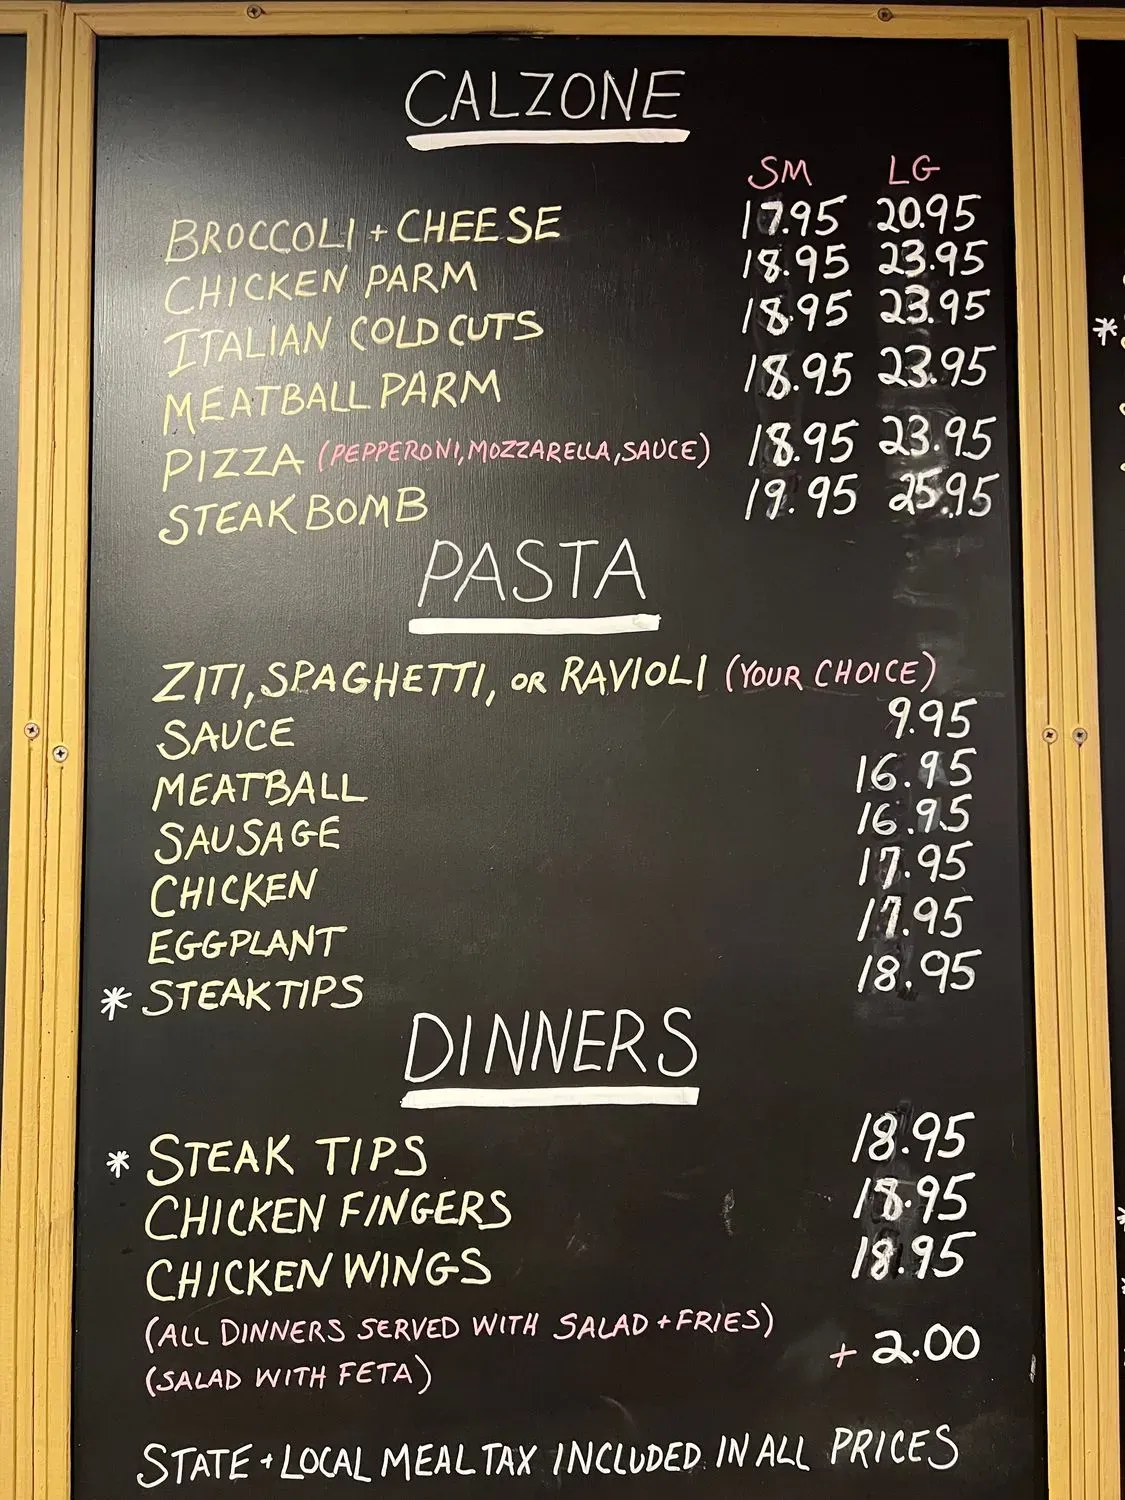 CALZONE
SM LG
BROCCOLI + CHEESE 17.95 20.95
CHICKEN PARM 18.95 23.95
ITALIAN COLD CUTS 18.95 23.95
MEATBALL PARM 18.95 23.95
PIZZA (PEPPERONI, MOZZARELLA, SAUCE) 18.95 23.95
STEAK BOMB 19.95 25.95
PASTA
ZITI, SPAGHETTI, OR RAVIOLI (YOUR CHOICE)
SAUCE 9.95
MEATBALL 16.95
SAUSAGE 16.95
CHICKEN 17.95
EGGPLANT 17.95
* STEAK TIPS 18.95
DINNERS
* STEAK TIPS 18.95
CHICKEN FINGERS 18.95
CHICKEN WINGS 18.95
(ALL DINNERS SERVED WITH SALAD + FRIES)
(SALAD WITH FETA) + 2.00
STATE + LOCAL MEAL TAX INCLUDED IN ALL PRICES